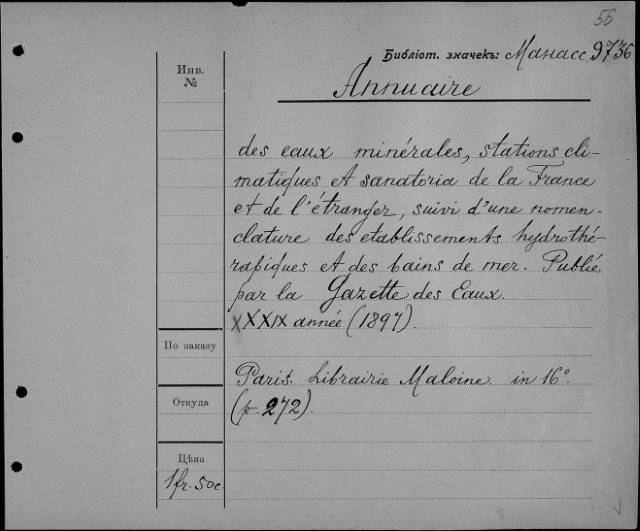 55
Библіот. значекъ: Манасс 9736
Инв.
№
Annuaire
des eaux minérales, stations cli-
matiques et sanatoria de la France
et de l'étranger, suivi d'une nomen-
clature des etablissements hydrothé-
rapiques et des bains de mer. Publié
par la Gazette des Eaux.
XXXIX année (1897).
По заказу
Paris. Librairie Maloine. in 16°.
(p. 272).
Откуда
Цѣна
1 fr. 50 c